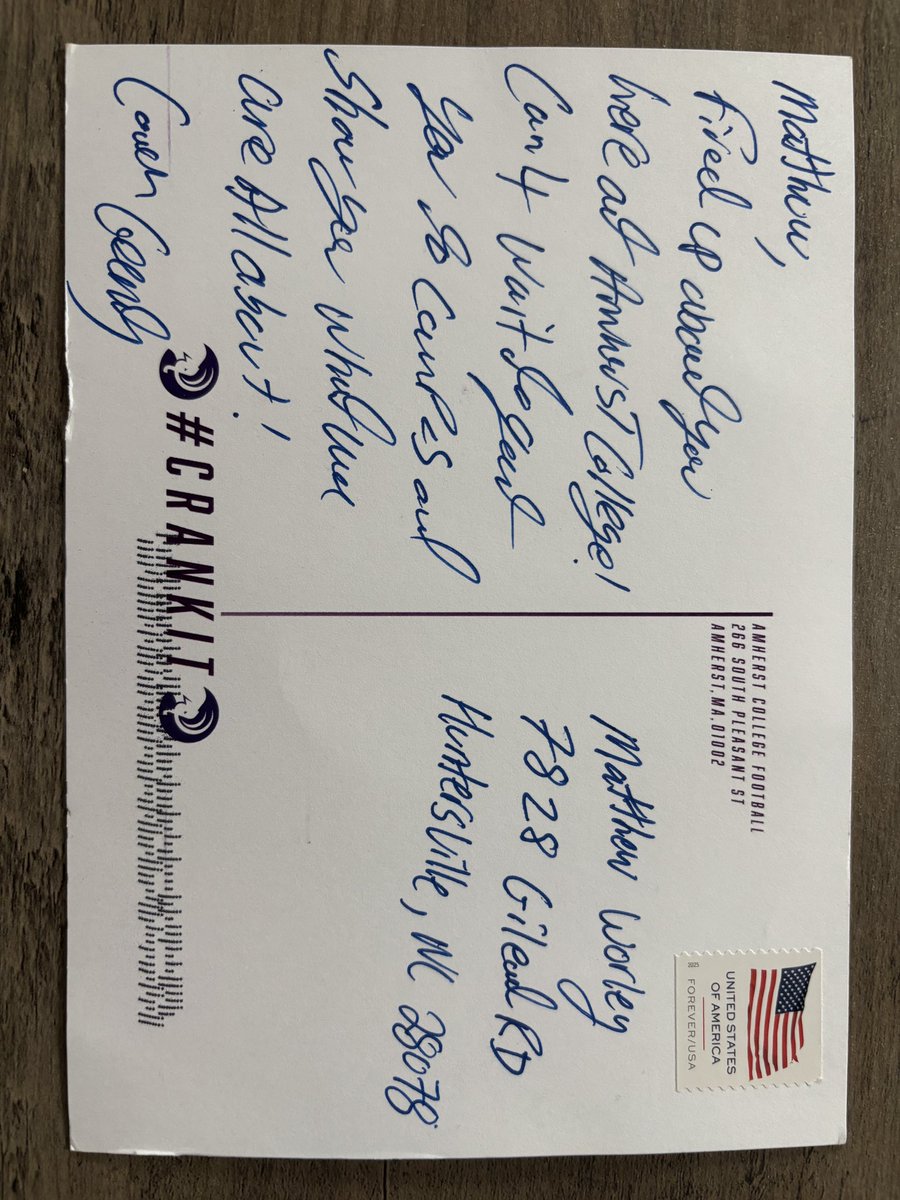 Matthew,
Fired up about you
here at Amherst College!
Can't wait to get
you to campus and
show you what we
are All about!
Coach
#CRANKIT
AMHERST COLLEGE FOOTBALL
266 SOUTH PLEASANT ST
AMHERST, MA, 01002
Matthew Worley
7828 Gilead RD
Huntersville, NC 28078
2025
UNITED STATES
OF AMERICA
FOREVER/USA